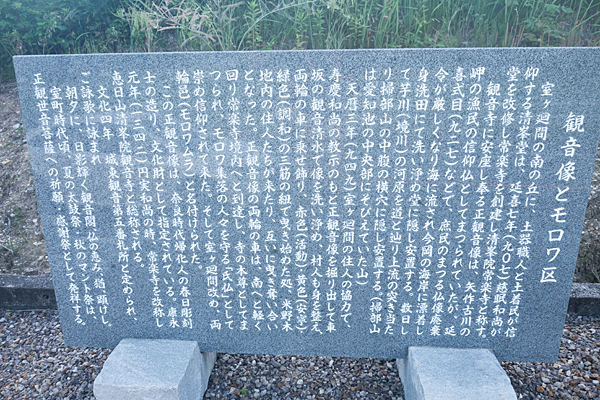 観音像とモロワ区
室ヶ廻間の南の丘に、土器職人と土着民が信
仰する清峯堂は、延喜七年(九〇七)慈眠和尚が
堂を改修し常楽寺を創建し清峯院常楽寺と称す。
観音寺に安座し奉る正観音像は、矢作古川の
岬の漁民の信仰仏としてまつられていたが、延
喜式目(九二七)などで、庶民のまつる仏像廃棄
令が厳しくなり海に流され今岡の海岸に漂着し
身洗田にて洗い浄め堂に隠し安置する。数日し
て芋川(境川)の河原を道と辿り上流の突き当た
り掃部山の中腹の横穴に隠し安置する(掃部山
は愛知池の中央部にそびえていた山)
天暦三年(九四九)室ヶ廻間の住人の協力で、
寿慶和尚の教示のもと正観音像を掘り出して車
坂の観音清水で像を洗い浄め、村人も身を整え、
両輪の車に乗せ飾り、赤色(活動)黄色(安堂)
緑色(調和)の三筋の紐で曳き始めた処、米野木
地内の住人たちが来たり、互いに曳き奪い合い
となった。正観音像の両輪の車は、南へと軽く
回り常楽寺境内へと到達し、寺の本尊としてま
つられ、モロワ集落の人々を守る「氏仏」として
崇め信仰されて来た。そして室ヶ廻間改め、両
輪邑(モロワムラ)と名付けられた。
この正観音像は、奈良時代帰化人の春日彫刻
士の造り、文化財として指定されている。康永
元年(一三四二)円実和尚の時、常楽寺を改称し
恵日山清峯院観音寺と総称される。
文化四年 城東観音第五番札所と定められ、
ご詠歌に詠まれ
朝夕に、日影輝く観音閣、山の恵み、猶頭けし。
室町時代頃、夏の太鼓祭、秋のマント祭は、
正観世音菩薩への祈願、感謝祭として発祥する。